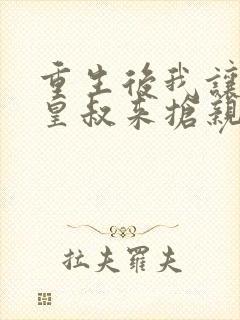 重生後我讓
皇叔來搶親
拉夫羅夫